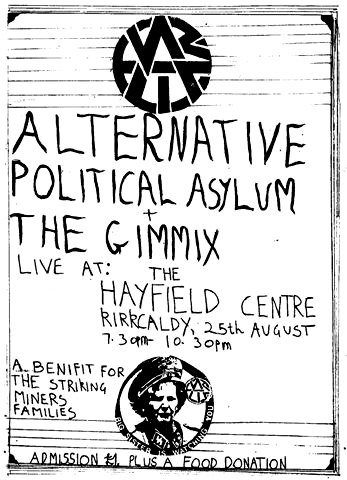 ALTERNATIVE
POLITICAL ASYLUM
+
THE GIMMIX
LIVE AT: THE
HAYFIELD CENTRE
KIRKCALDY, 25th AUGUST
7.30pm- 10.30pm
A BENIFIT FOR
THE STRIKING
MINERS
FAMILIES
BIG SISTER IS WATCHING YOU
ADMISSION £1. PLUS A FOOD DONATION